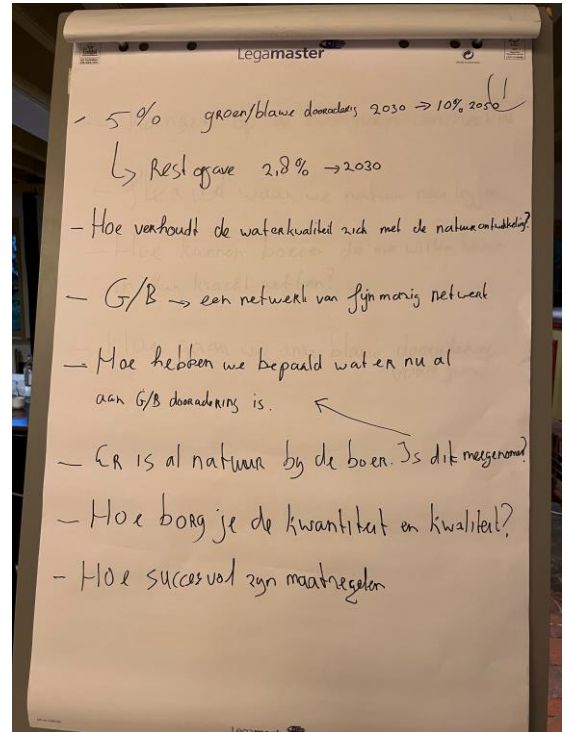 Legamaster
- 5% groen/blauwe dooradering 2030 → 10% 2050 (!
↳ Restopgave 2,8% → 2030
- Hoe verhoudt de waterkwaliteit zich met de natuurontwikkeling?
- G/B → een netwerk van fijnmazig netwerk
- Hoe hebben we bepaald wat er nu al
aan G/B dooradering is.
- ER is al natuur by de boer. Is dit meegenomen?
- Hoe borg je de kwantiteit en kwaliteit?
- Hoe succesvol zyn maatregelen
Legamaster